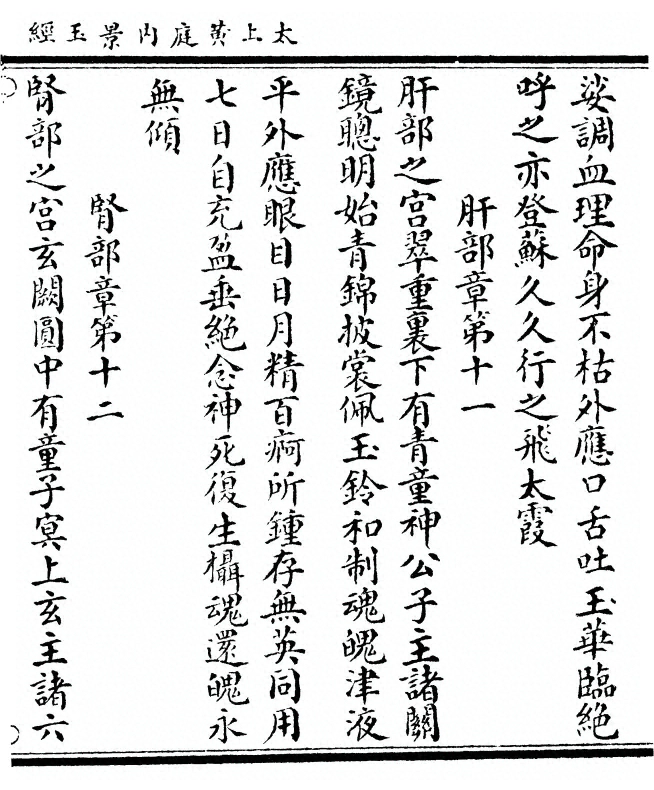 太上黄庭内景玉經
娑調血理命身不枯外應口舌吐玉華臨絶
呼之亦登蘇久久行之飛太霞
肝部章第十一
肝部之宮翠重裏下有青童神公子主諸關
鏡聰明始青錦披裳佩玉鈴和制魂魄津液
平外應眼目日月精百痾所鍾存無英同用
七日自充盈垂絶念神死復生攝魂還魄永
無傾
腎部章第十二
腎部之宮玄闕圓中有童子冥上玄主諸六